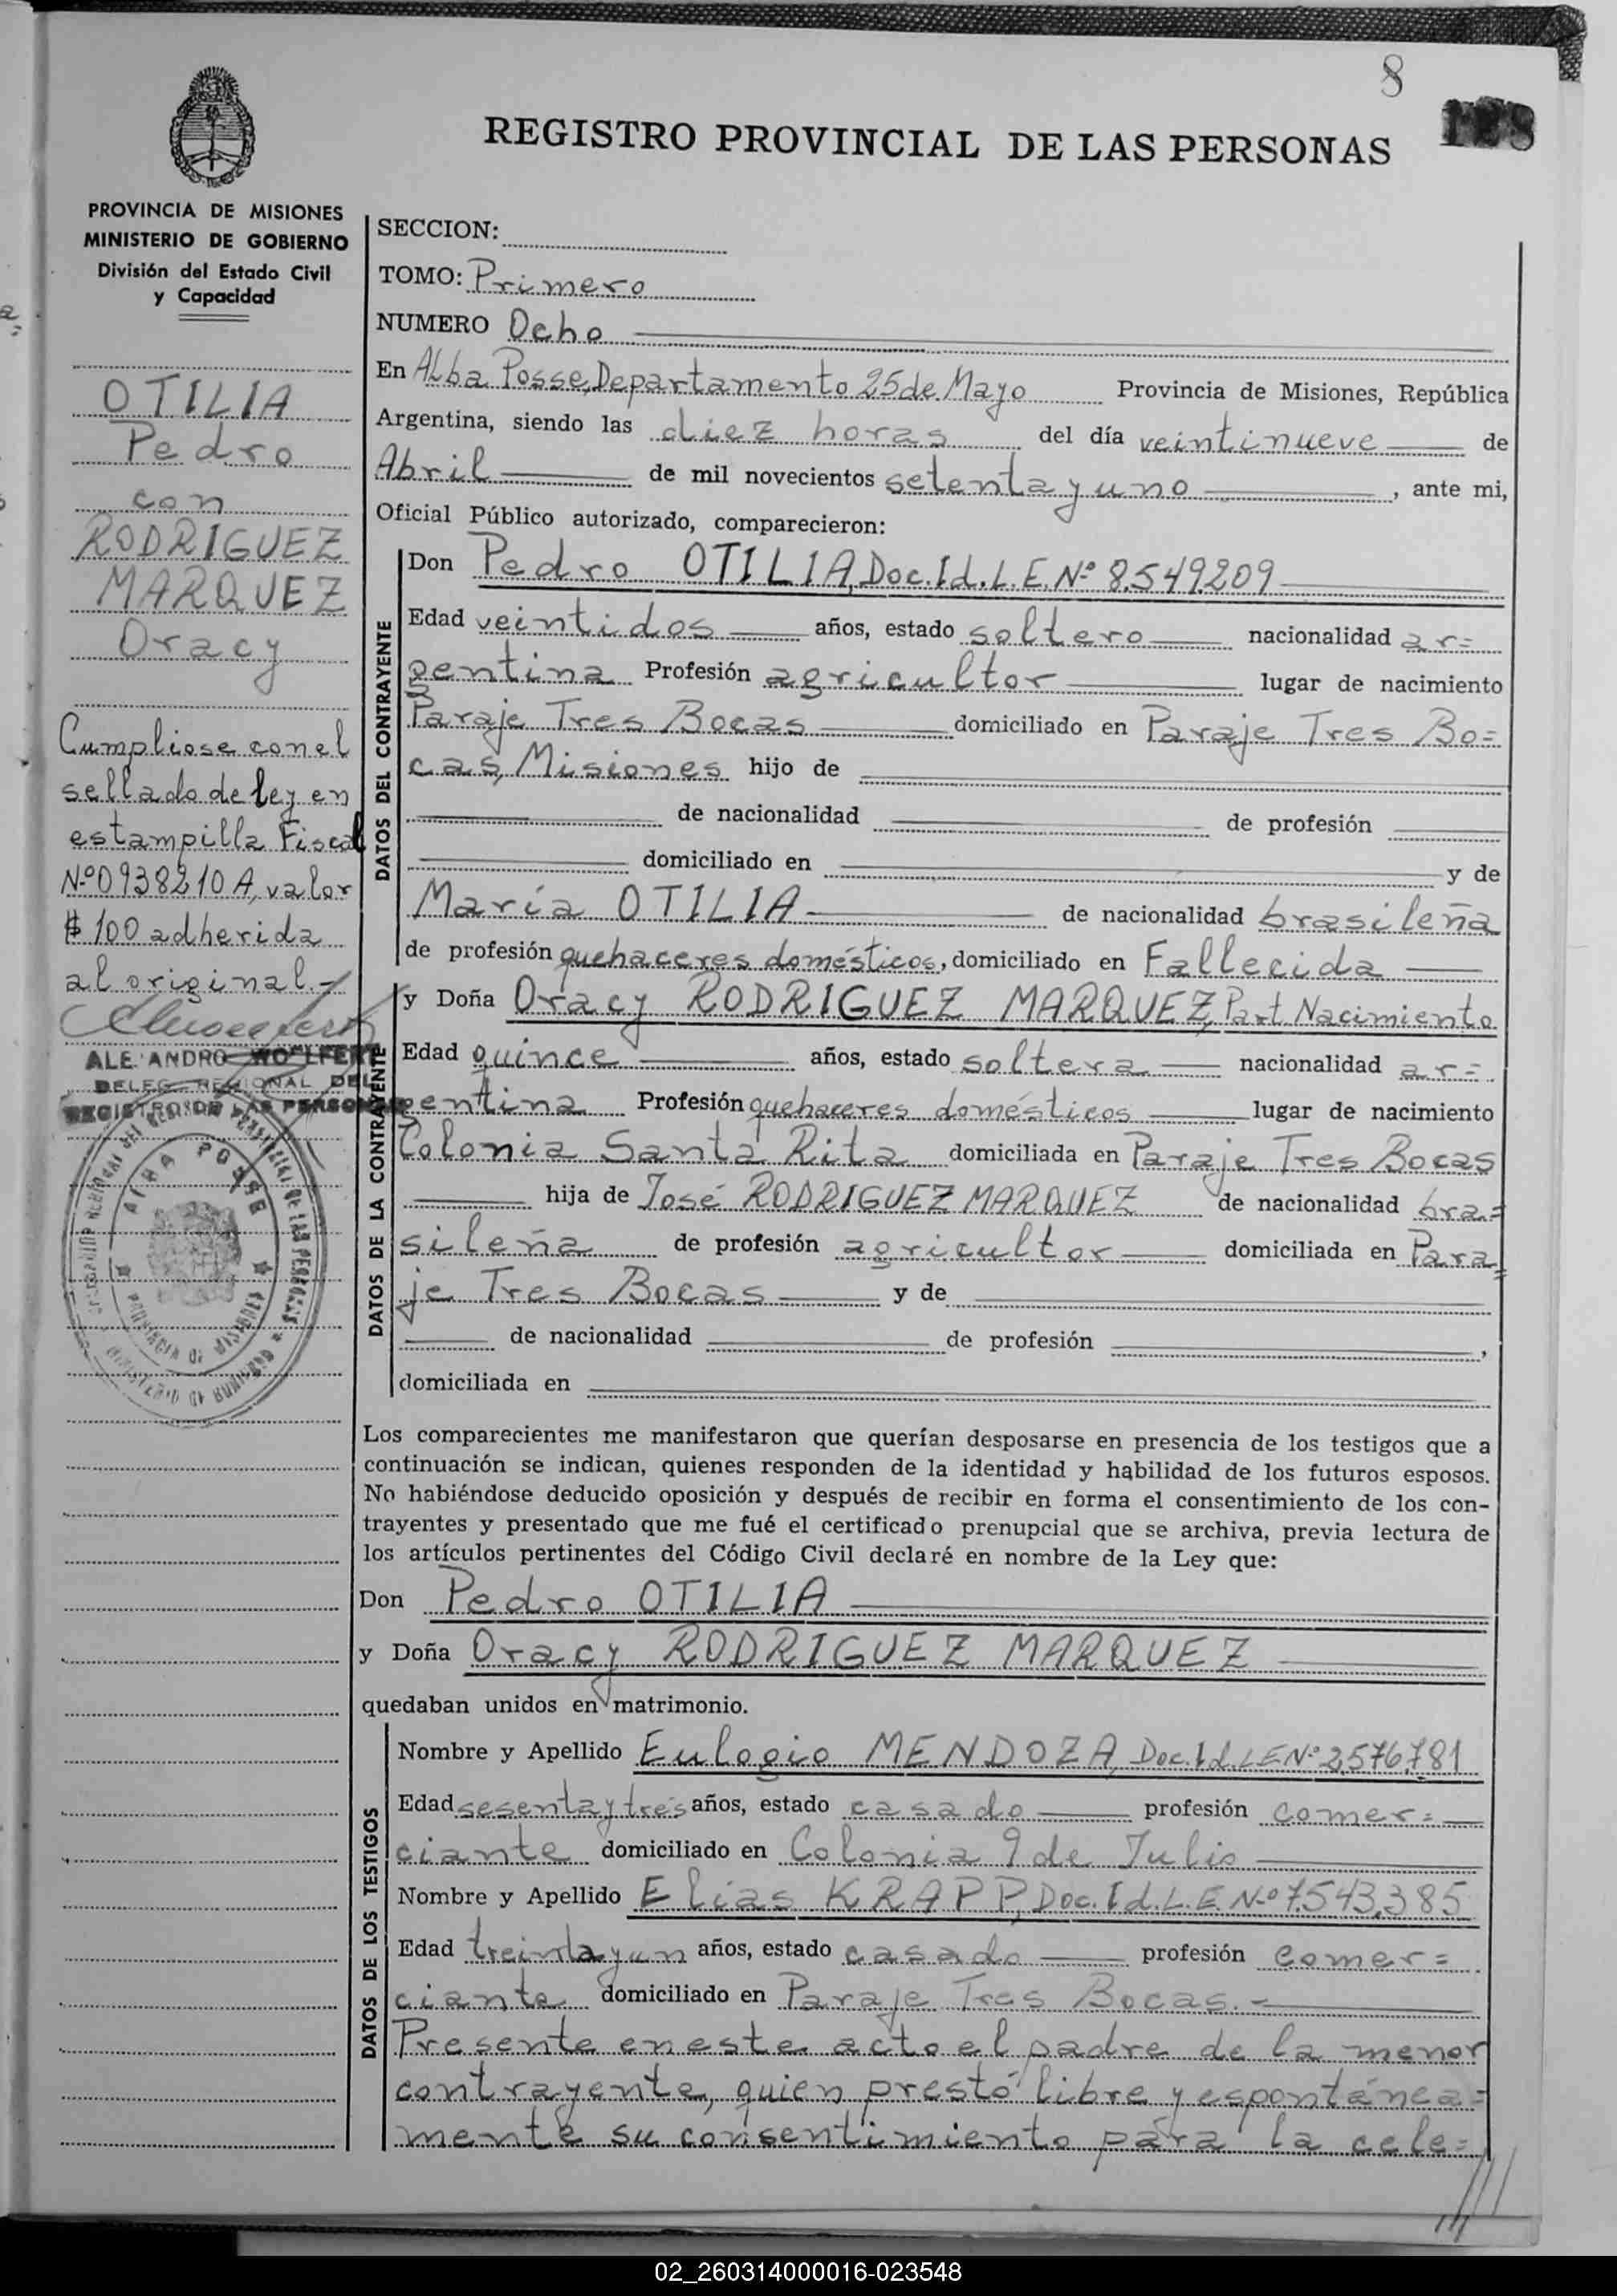 8
REGISTRO PROVINCIAL DE LAS PERSONAS
PROVINCIA DE MISIONES
MINISTERIO DE GOBIERNO
División del Estado Civil
y Capacidad
OTILIA
Pedro
con
RODRIGUEZ
MARQUEZ
Oracy
Cumpliose con el
sellado de ley en
estampilla Fiscal
Nº 0938210 A, valor
$ 100 adherida
al original.-
ALEJANDRO WOLFERT
DELEG. REGIONAL DEL
REGISTRO DE LAS PERSONAS
ALBA POSSE
SECCION:
TOMO: Primero
NUMERO Ocho
En Alba Posse, Departamento 25 de Mayo Provincia de Misiones, República
Argentina, siendo las diez horas del día veintinueve de
Abril de mil novecientos setenta y uno, ante mi,
Oficial Público autorizado, comparecieron:
DATOS DEL CONTRAYENTE
Don Pedro OTILIA, Doc. Id. L. E. Nº 8.549.209
Edad veintidos años, estado soltero nacionalidad ar=
gentina Profesión agricultor lugar de nacimiento
Paraje Tres Bocas domiciliado en Paraje Tres Bo=
cas, Misiones hijo de
de nacionalidad de profesión
domiciliado en y de
María OTILIA de nacionalidad brasileña
de profesión quehaceres domésticos, domiciliado en Fallecida
DATOS DE LA CONTRAYENTE
y Doña Oracy RODRIGUEZ MARQUEZ, Part. Nacimiento
Edad quince años, estado soltera nacionalidad ar=
gentina Profesión quehaceres domésticos lugar de nacimiento
Colonia Santa Rita domiciliada en Paraje Tres Bocas
hija de José RODRIGUEZ MARQUEZ de nacionalidad bra=
sileña de profesión agricultor domiciliada en Para=
je Tres Bocas y de
de nacionalidad de profesión ,
domiciliada en
Los comparecientes me manifestaron que querían desposarse en presencia de los testigos que a
continuación se indican, quienes responden de la identidad y habilidad de los futuros esposos.
No habiéndose deducido oposición y después de recibir en forma el consentimiento de los con-
trayentes y presentado que me fué el certificado prenupcial que se archiva, previa lectura de
los artículos pertinentes del Código Civil declaré en nombre de la Ley que:
Don Pedro OTILIA
y Doña Oracy RODRIGUEZ MARQUEZ
quedaban unidos en matrimonio.
DATOS DE LOS TESTIGOS
Nombre y Apellido Eulogio MENDOZA, Doc. Id. L E Nº 2.576.781
Edad sesenta y tres años, estado casado profesión comer=
ciante domiciliado en Colonia 9 de Julio
Nombre y Apellido Elías KRAPP, Doc. Id. L. E. Nº 7.543.385
Edad treinta y un años, estado casado profesión comer=
ciante domiciliado en Paraje Tres Bocas.-
Presente en este acto el padre de la menor
contrayente, quien prestó libre y espontánea=
mente su consentimiento para la cele=
02_260314000016-023548